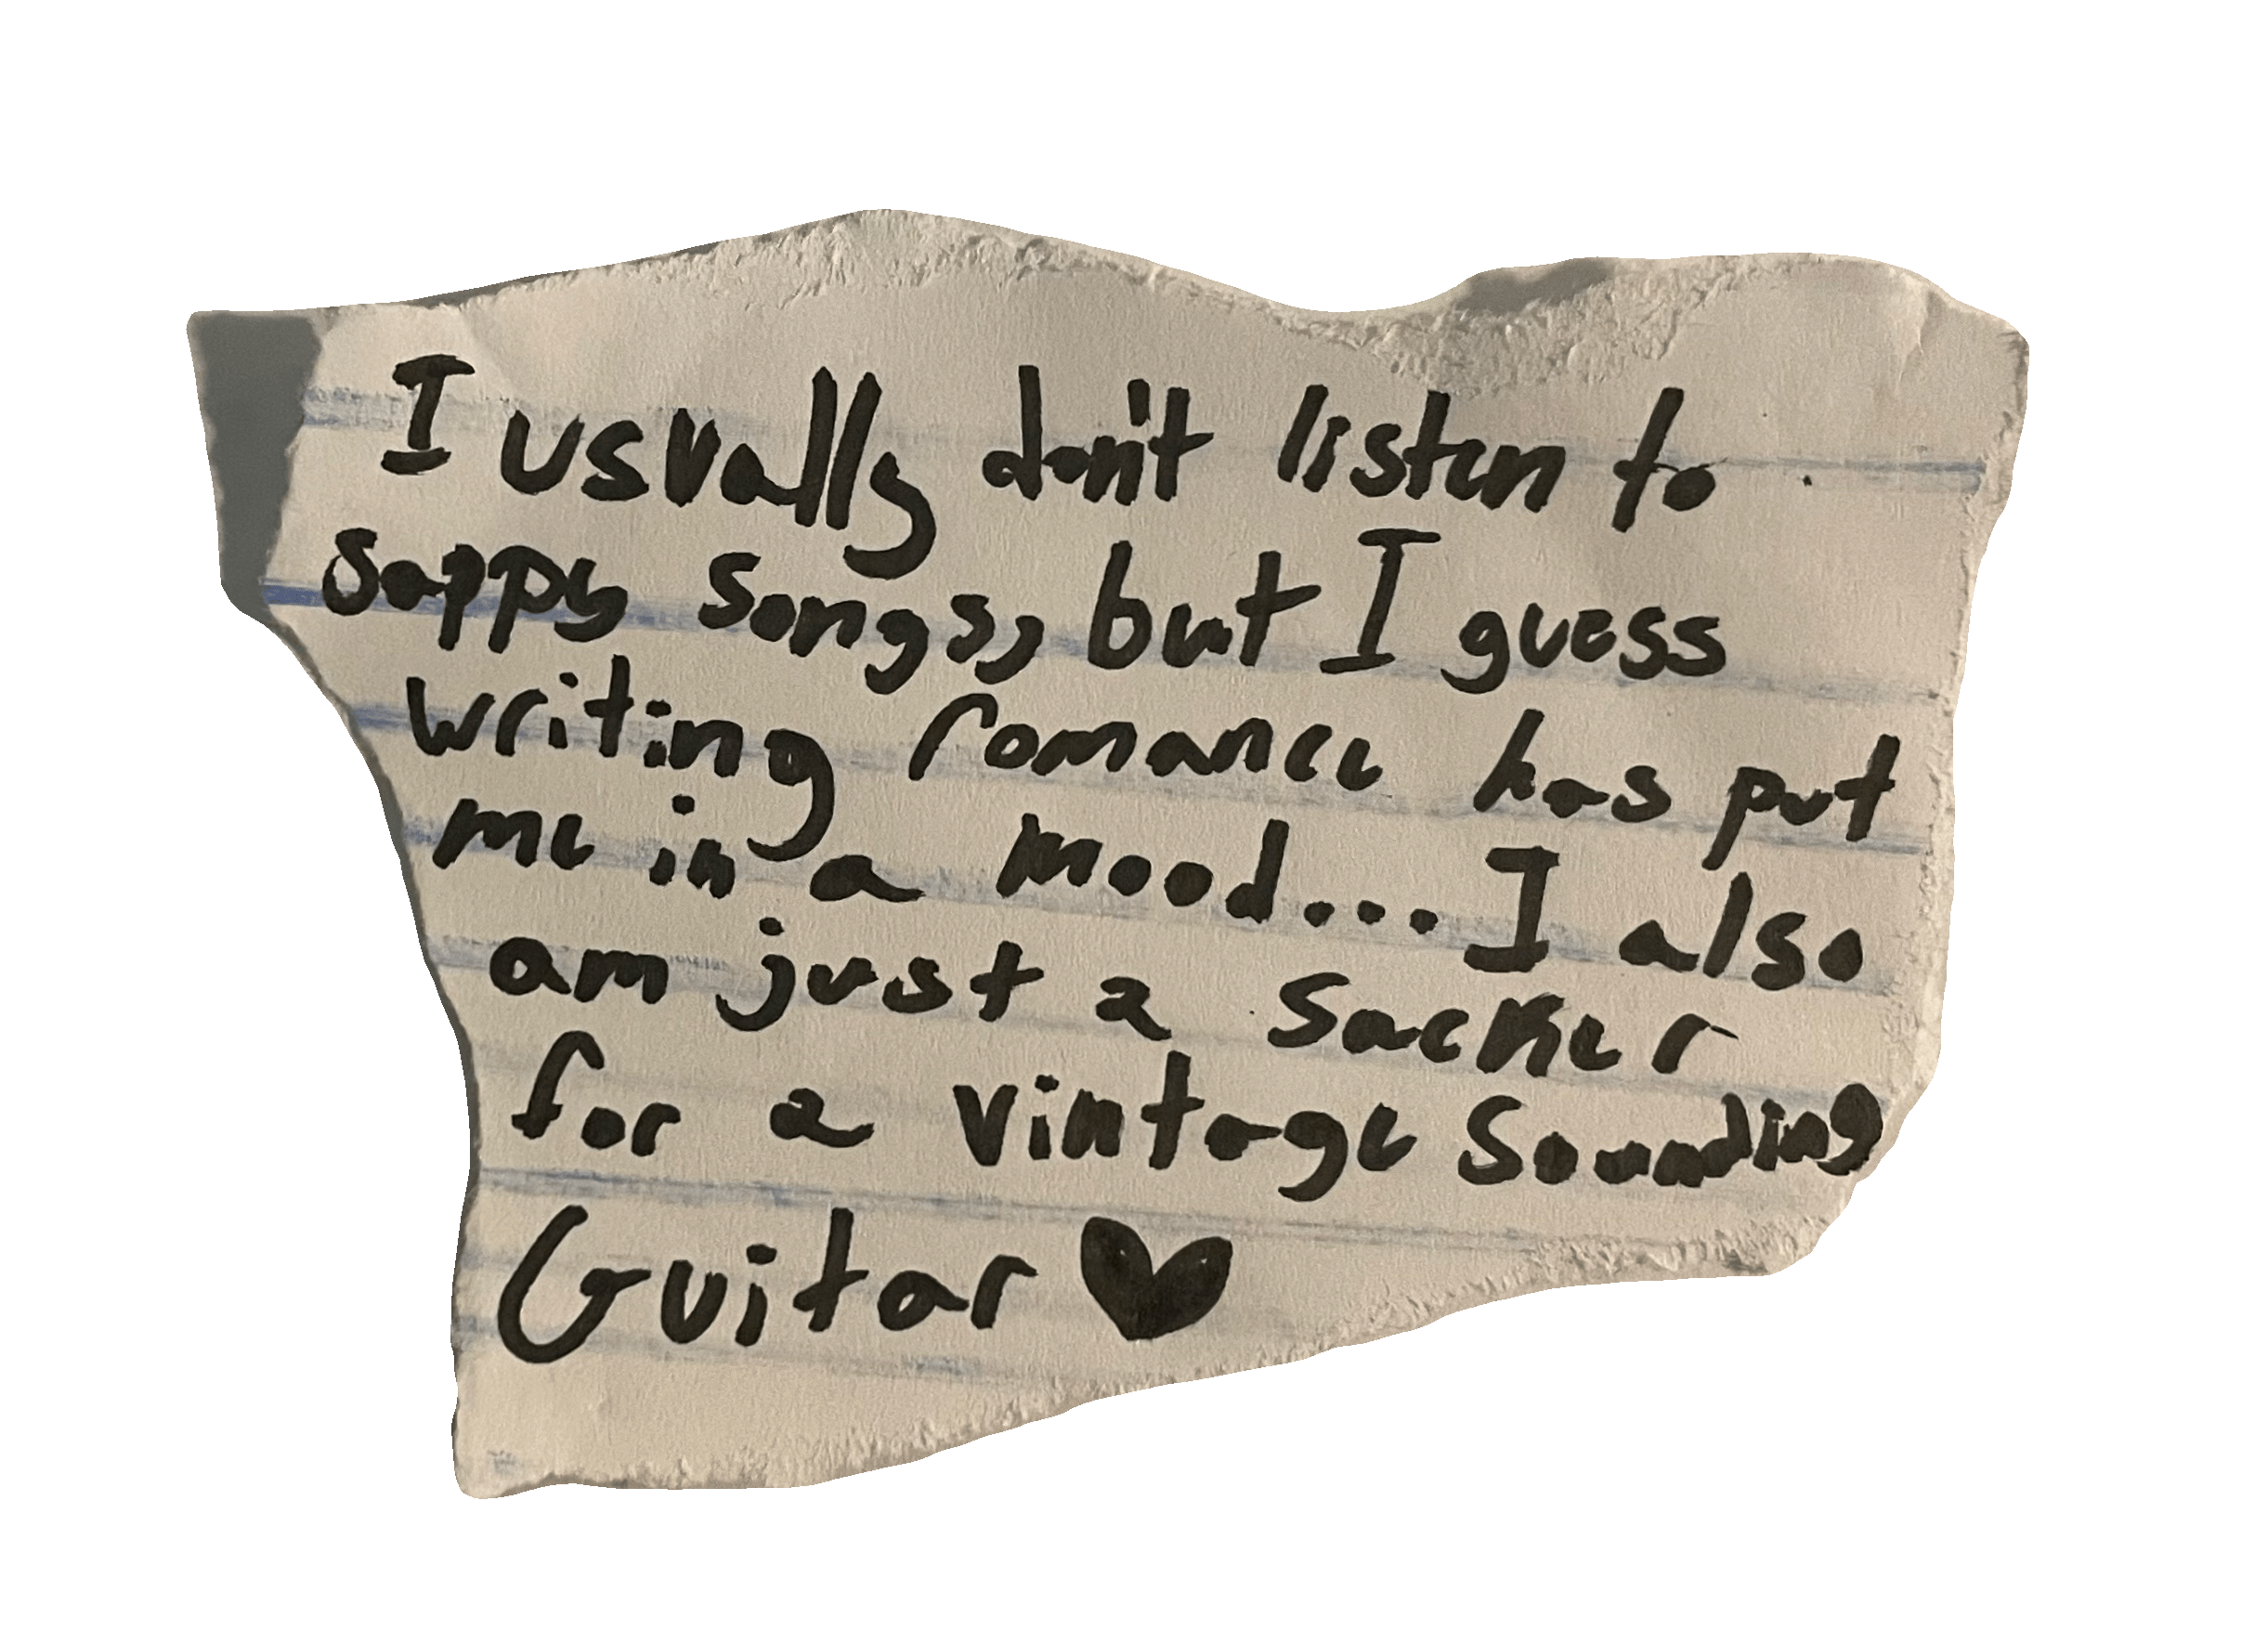 I usually don't listen to
sappy songs, but I guess
writing romance has put
me in a mood... I also
am just a sucker
for a vintage sounding
Guitar ♥